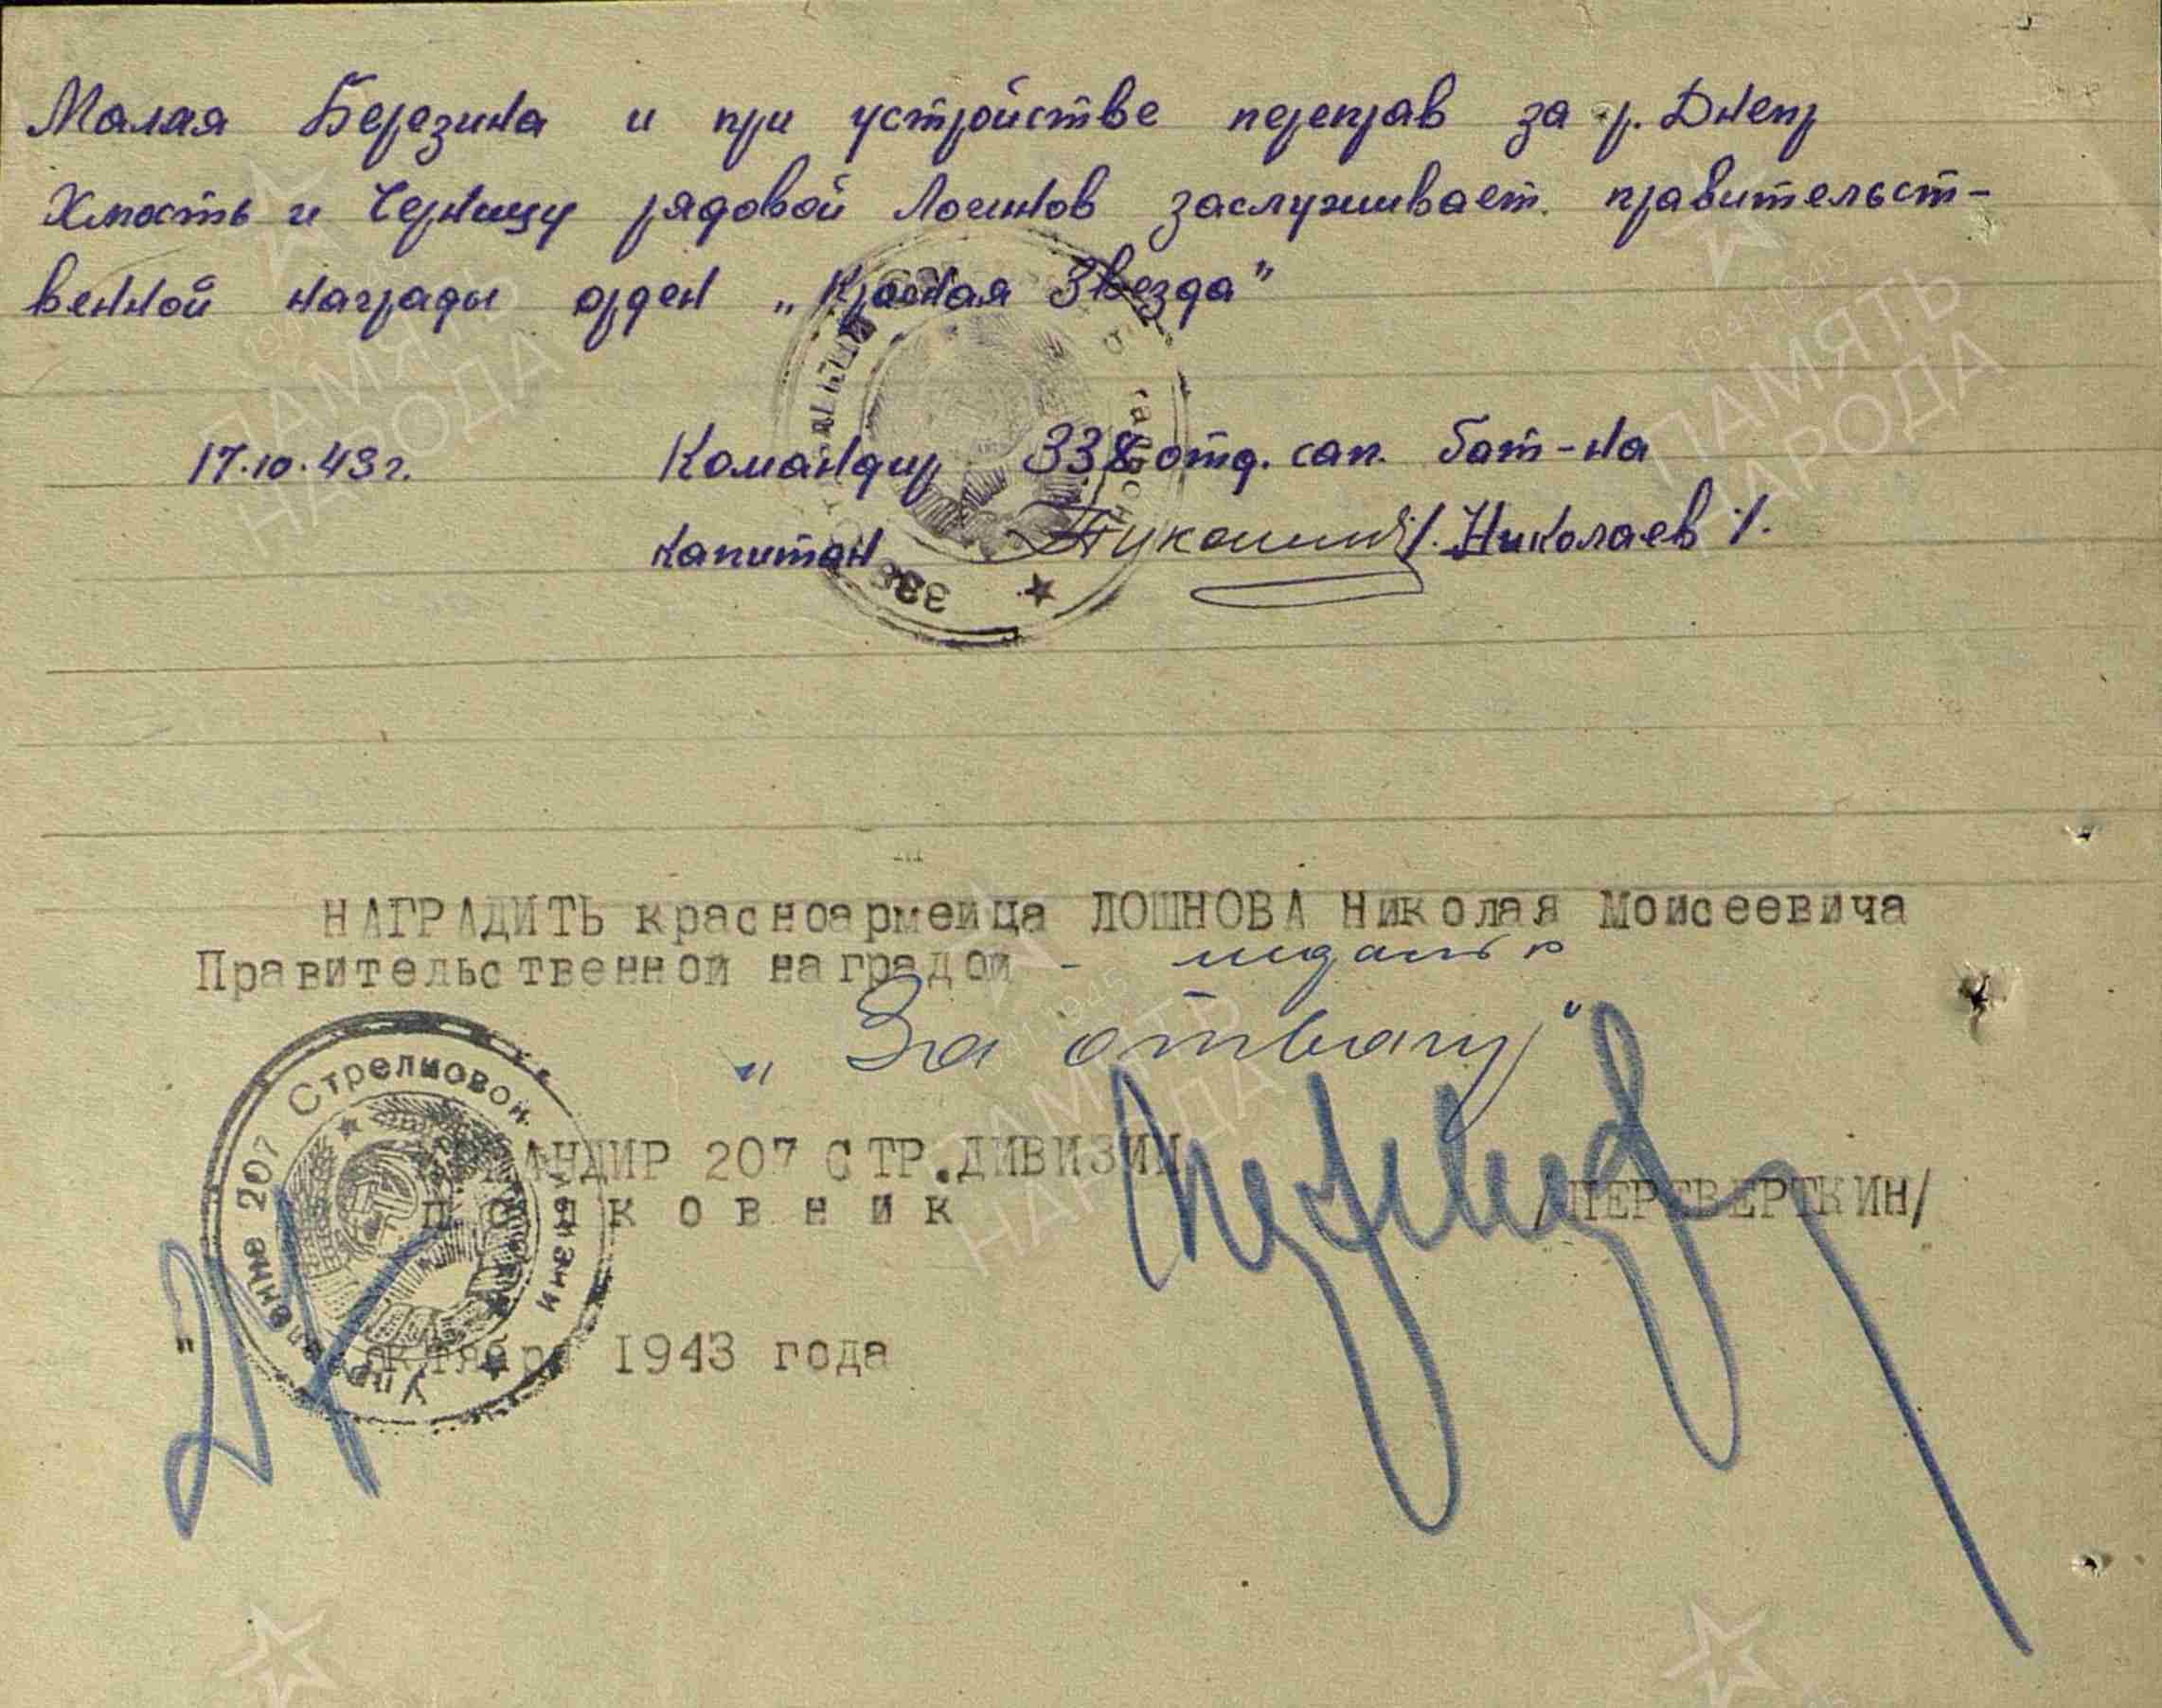 Малая Березина и при устройстве переправ за р. Днепр
Хмость и Черницу рядовой Лошнов заслуживает правительст-
венной награды орден „Красная Звезда"
17.10.43 г. Командир 338 отд. сап. бат-на
капитан /. Николаев /.
НАГРАДИТЬ красноармейца ЛОШНОВА Николая Моисеевича
Правительственной наградой - медалью
„За отвагу"
АНДИР 207 СТР.ДИВИЗИИ
полковник /ПЕРЕВЕРТКИН/
октября 1943 года
Управление 207 Стрелковой дивизии
338
1941-1945
ПАМЯТЬ
НАРОДА